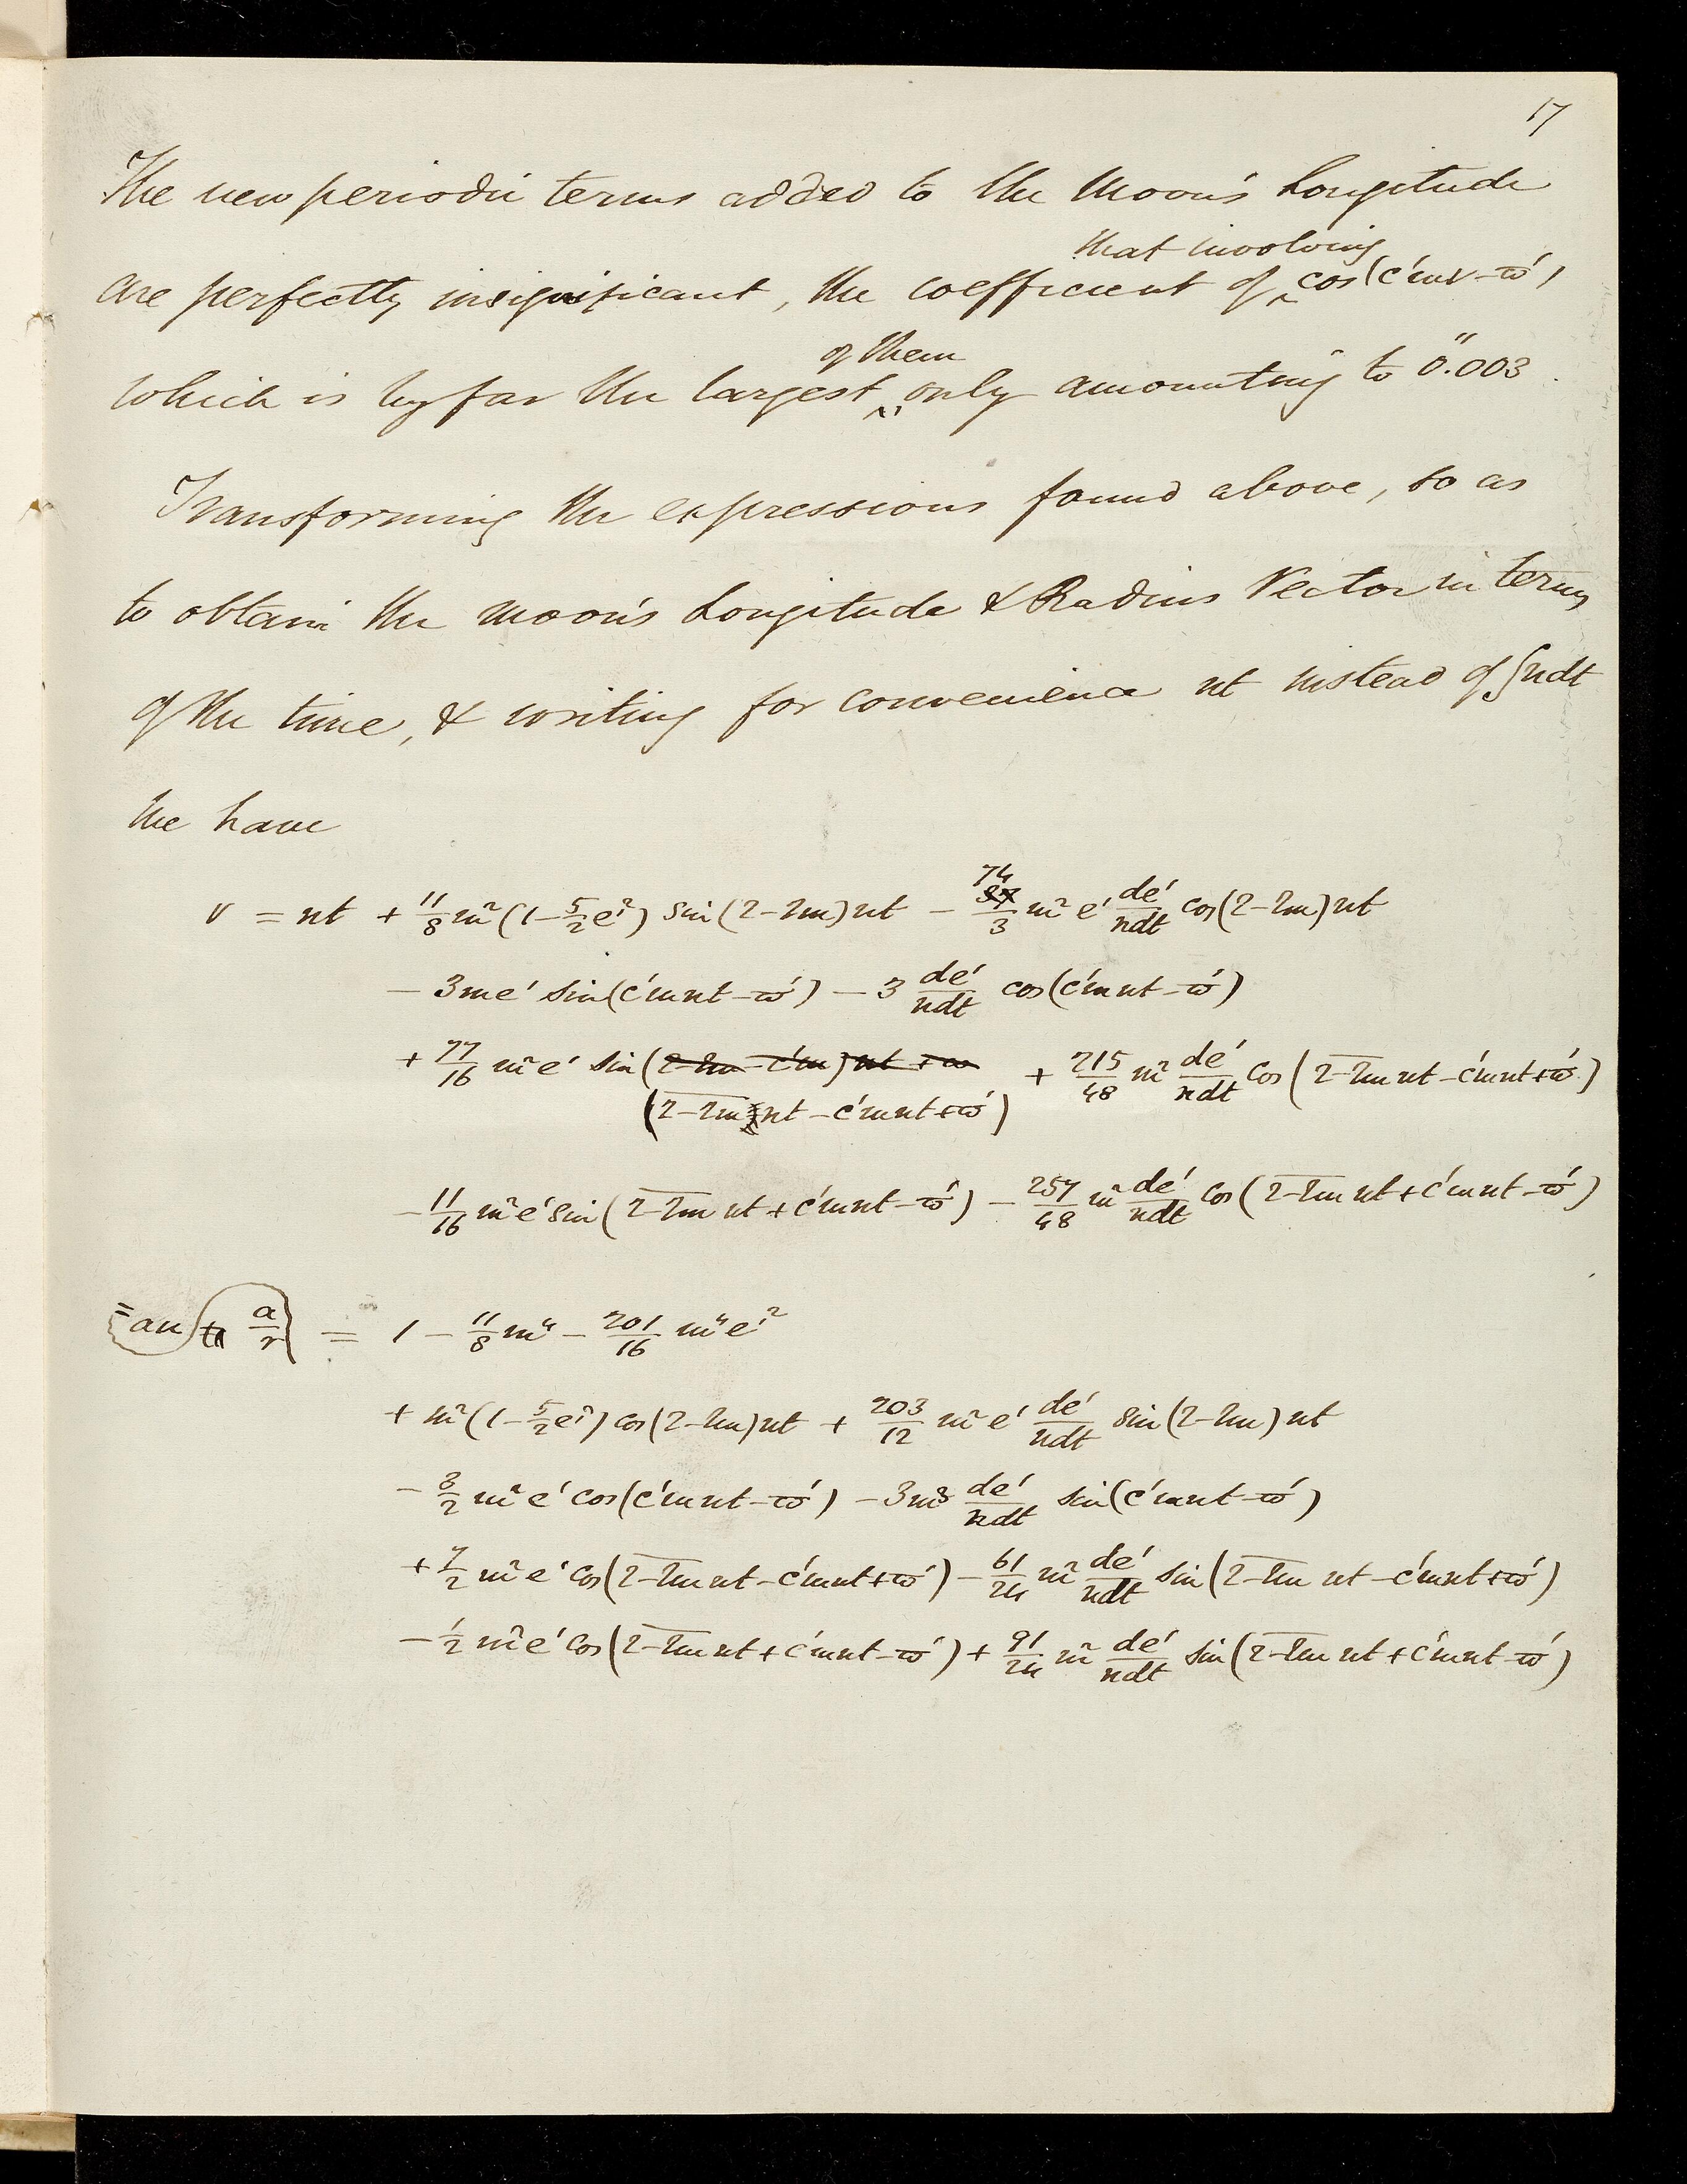 17
The new periodic terms added to the Moon's Longitude
that involving
are perfectly insignificant, the coefficient of ‸ cos(c'mν - ϖ'),
of them
which is by far the largest ‸ only amounting to 0".003.
Transforming the expressions found above, so as
to obtain the moon's Longitude & Radius Vector in terms
of the time, & writing for convenience nt instead of ∫ndt
we have
74
v = nt + 11/8 m² (1 - 5/2 e'²) sin(2-2m)nt - /3 m² e' de'/ndt cos(2-2m)nt
- 3me' sin(c'mnt - ϖ') - 3 de'/ndt cos(c'mnt - ϖ')
+ 77/16 m² e' sin (2-2m-c'm)nt + ϖ + 215/48 m² de'/ndt cos(2-2m nt - c'mnt + ϖ')
(2-2m nt - c'mnt + ϖ')
- 11/16 m² e' sin(2-2m nt + c'mnt - ϖ') - 257/48 m² de'/ndt cos(2-2m nt + c'mnt - ϖ')
= au a/r = 1 - 11/8 m⁴ - 201/16 m⁴ e'²
+ m² (1 - 5/2 e'²) cos(2-2m)nt + 203/12 m² e' de'/ndt sin(2-2m)nt
- 3/2 m² e' cos(c'mnt - ϖ') - 3m³ de'/ndt sin(c'mnt - ϖ')
+ 7/2 m² e' cos(2-2m nt - c'mnt + ϖ') - 61/24 m² de'/ndt sin(2-2m nt - c'mnt + ϖ')
- 1/2 m² e' cos(2-2m nt + c'mnt - ϖ') + 91/24 m² de'/ndt sin(2-2m nt + c'mnt - ϖ')